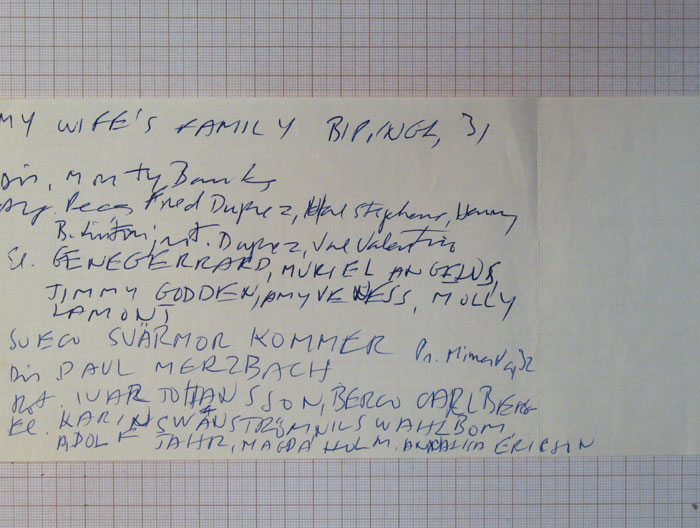 MY WIFE'S FAMILY BIP, INGL, 31
Dir, Monty Banks
Arg. Peça Fred Duprez, Hal Stephens, Harry
B. Linton, int. Duprez, Val Valentin
El. GENE GERRARD, MURIEL ANGELUS,
JIMMY GODDEN, AMY VENESS, MOLLY
LAMONT
SUECO SVÄRMOR KOMMER Pr. Minerva, 32
Dir PAUL MERZBACH
Rot. IVAR JOHANSSON, BERCO CARLBERG
El. KARIN SWÄNSTRÖM, NILS WAHLBOM,
ADOLF JAHR, MAGDA HOLM, ANNALISA ERICSON